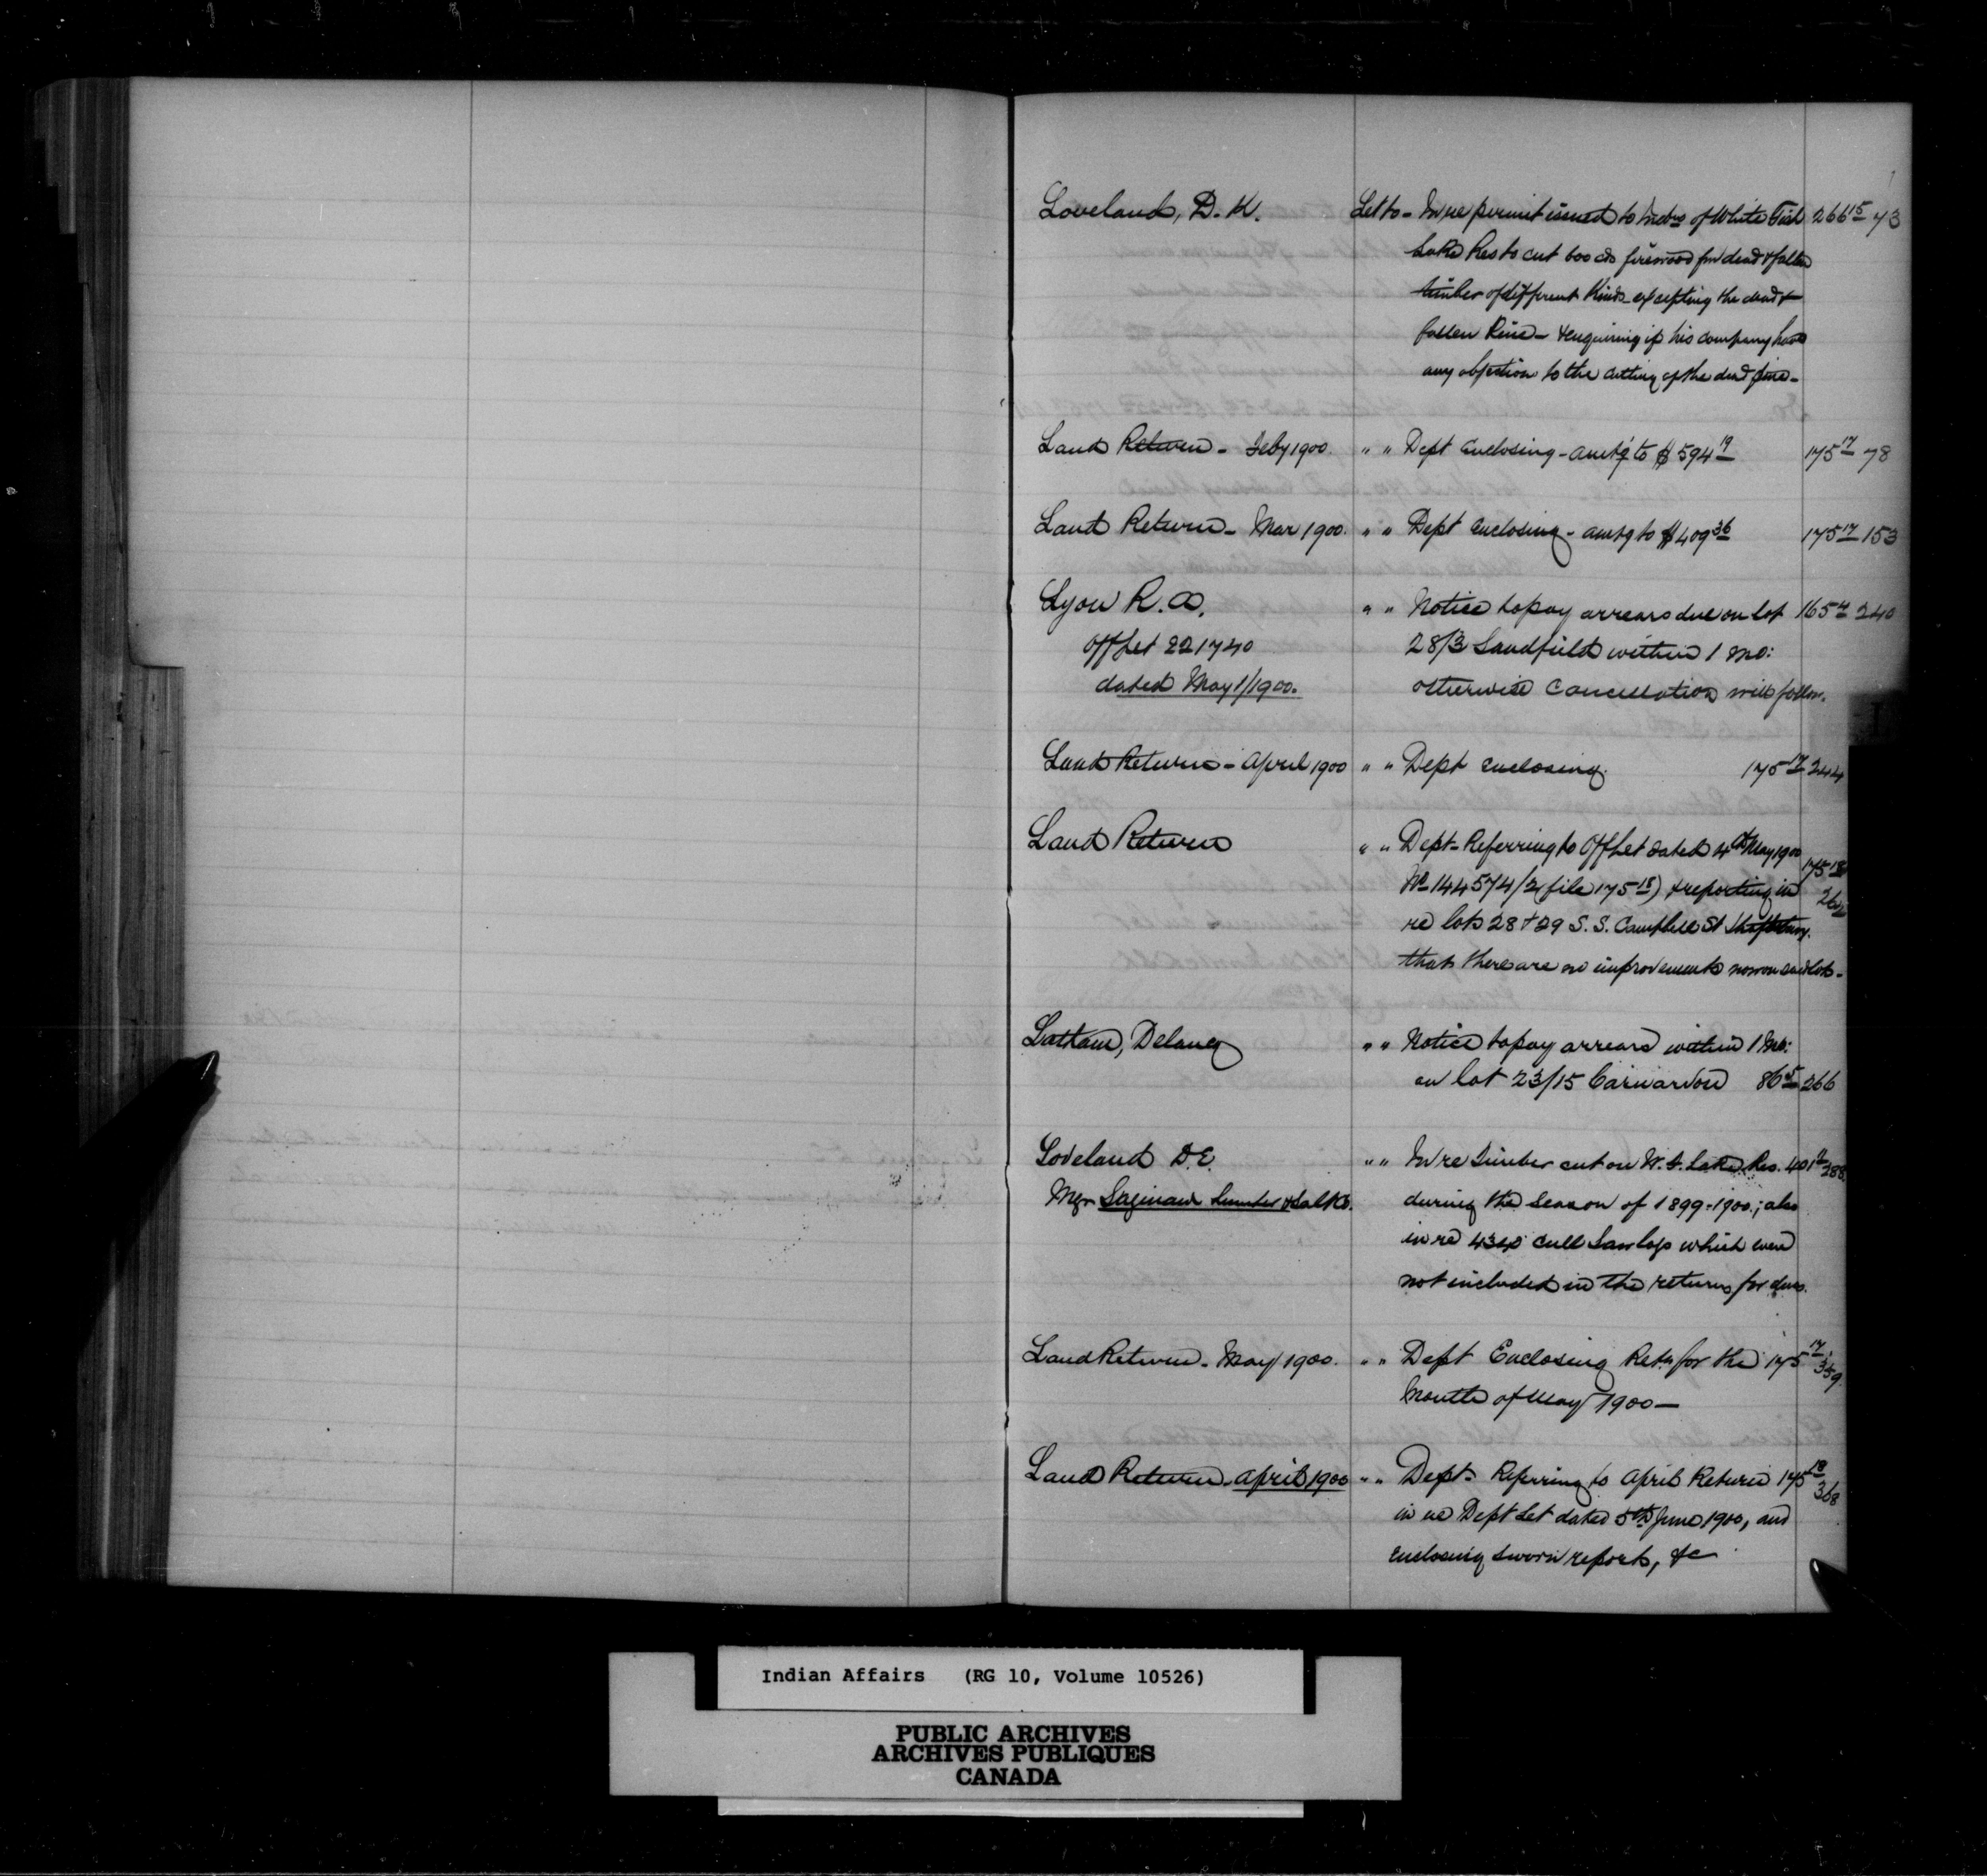 Loveland, D. K. Let to - In re permit issued to Indns of White Fish 266 15 73
Lake Res to cut 600 cds firewood fm dead & fallen
timber of different kinds excepting the dead &
fallen Pine - & enquiring if his company have
any objection to the cutting of the dead pine -
Land Return - Feby 1900. " " Dept Enclosing - amtg to $594 19 175 17 78
Land Return - Mar 1900. " " Dept Enclosing - amtg to $409 36 175 17 153
Lyon R. A. " " Notice to pay arrears due on lot 165 4 240
Off Let 221740 28/3 Sandfield within 1 mo:
dated May 1/1900. otherwise Cancellation will follow.
Land Return - April 1900 " " Dept enclosing. 175 17 244
Land Return " " Dept - Referring to Off Let dated 4th May 1900
No 144574/2 (file 175 18) & reporting in 175 18
re lots 28 & 29 S. S. Campbell St Shaftsbury.
that there are no improvements now on said lots -
Latham, Delaney " " Notice to pay arrears within 1 mo:
on lot 23/15 Carnarvon 86 5 266
Loveland D.E. " " In re Timber cut on W. F. Lake Res. 401 288
Mgr Saginaw Lumber & Salt Co. during the Season of 1899-1900; also
in re cull Saw logs which were
not included in the returns for dues.
Land Return - May 1900. " " Dept Enclosing Retn for the 175 17 359
Month of May 1900 -
Land Return - April 1900 " " Dept - Referring to April Return 175 18 368
in re Dept Let dated 5th June 1900, and
enclosing sworn reports, &c
Indian Affairs (RG 10, Volume 10526)
PUBLIC ARCHIVES
ARCHIVES PUBLIQUES
CANADA